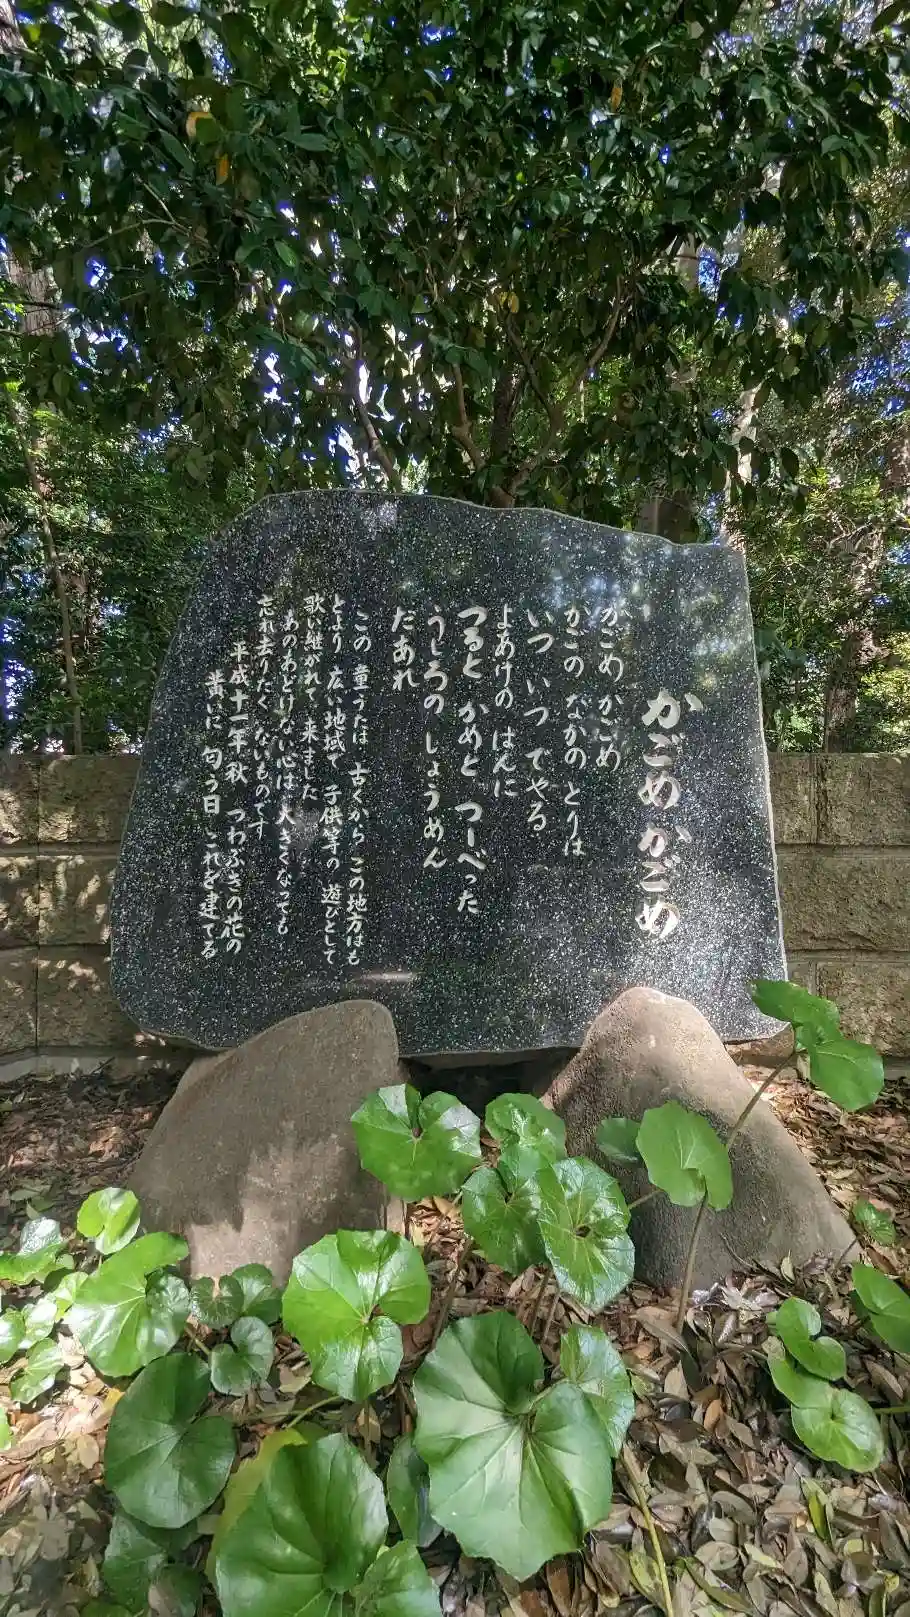 かごめかごめ
かごめ かごめ
かごの なかの とりは
いつ いつ でやる
よあけの はんに
つると かめと つーべった
うしろの しょうめん
だあれ
この 童うたは 古くから この地方はも
とより 広い地域で 子供等の 遊びとして
歌い継がれて 来ました
あのあどけない心は 大きくなっても
忘れ去りたく ないものです
平成十一年秋 つわぶきの花の
黄いに 匂う日 これを建てる